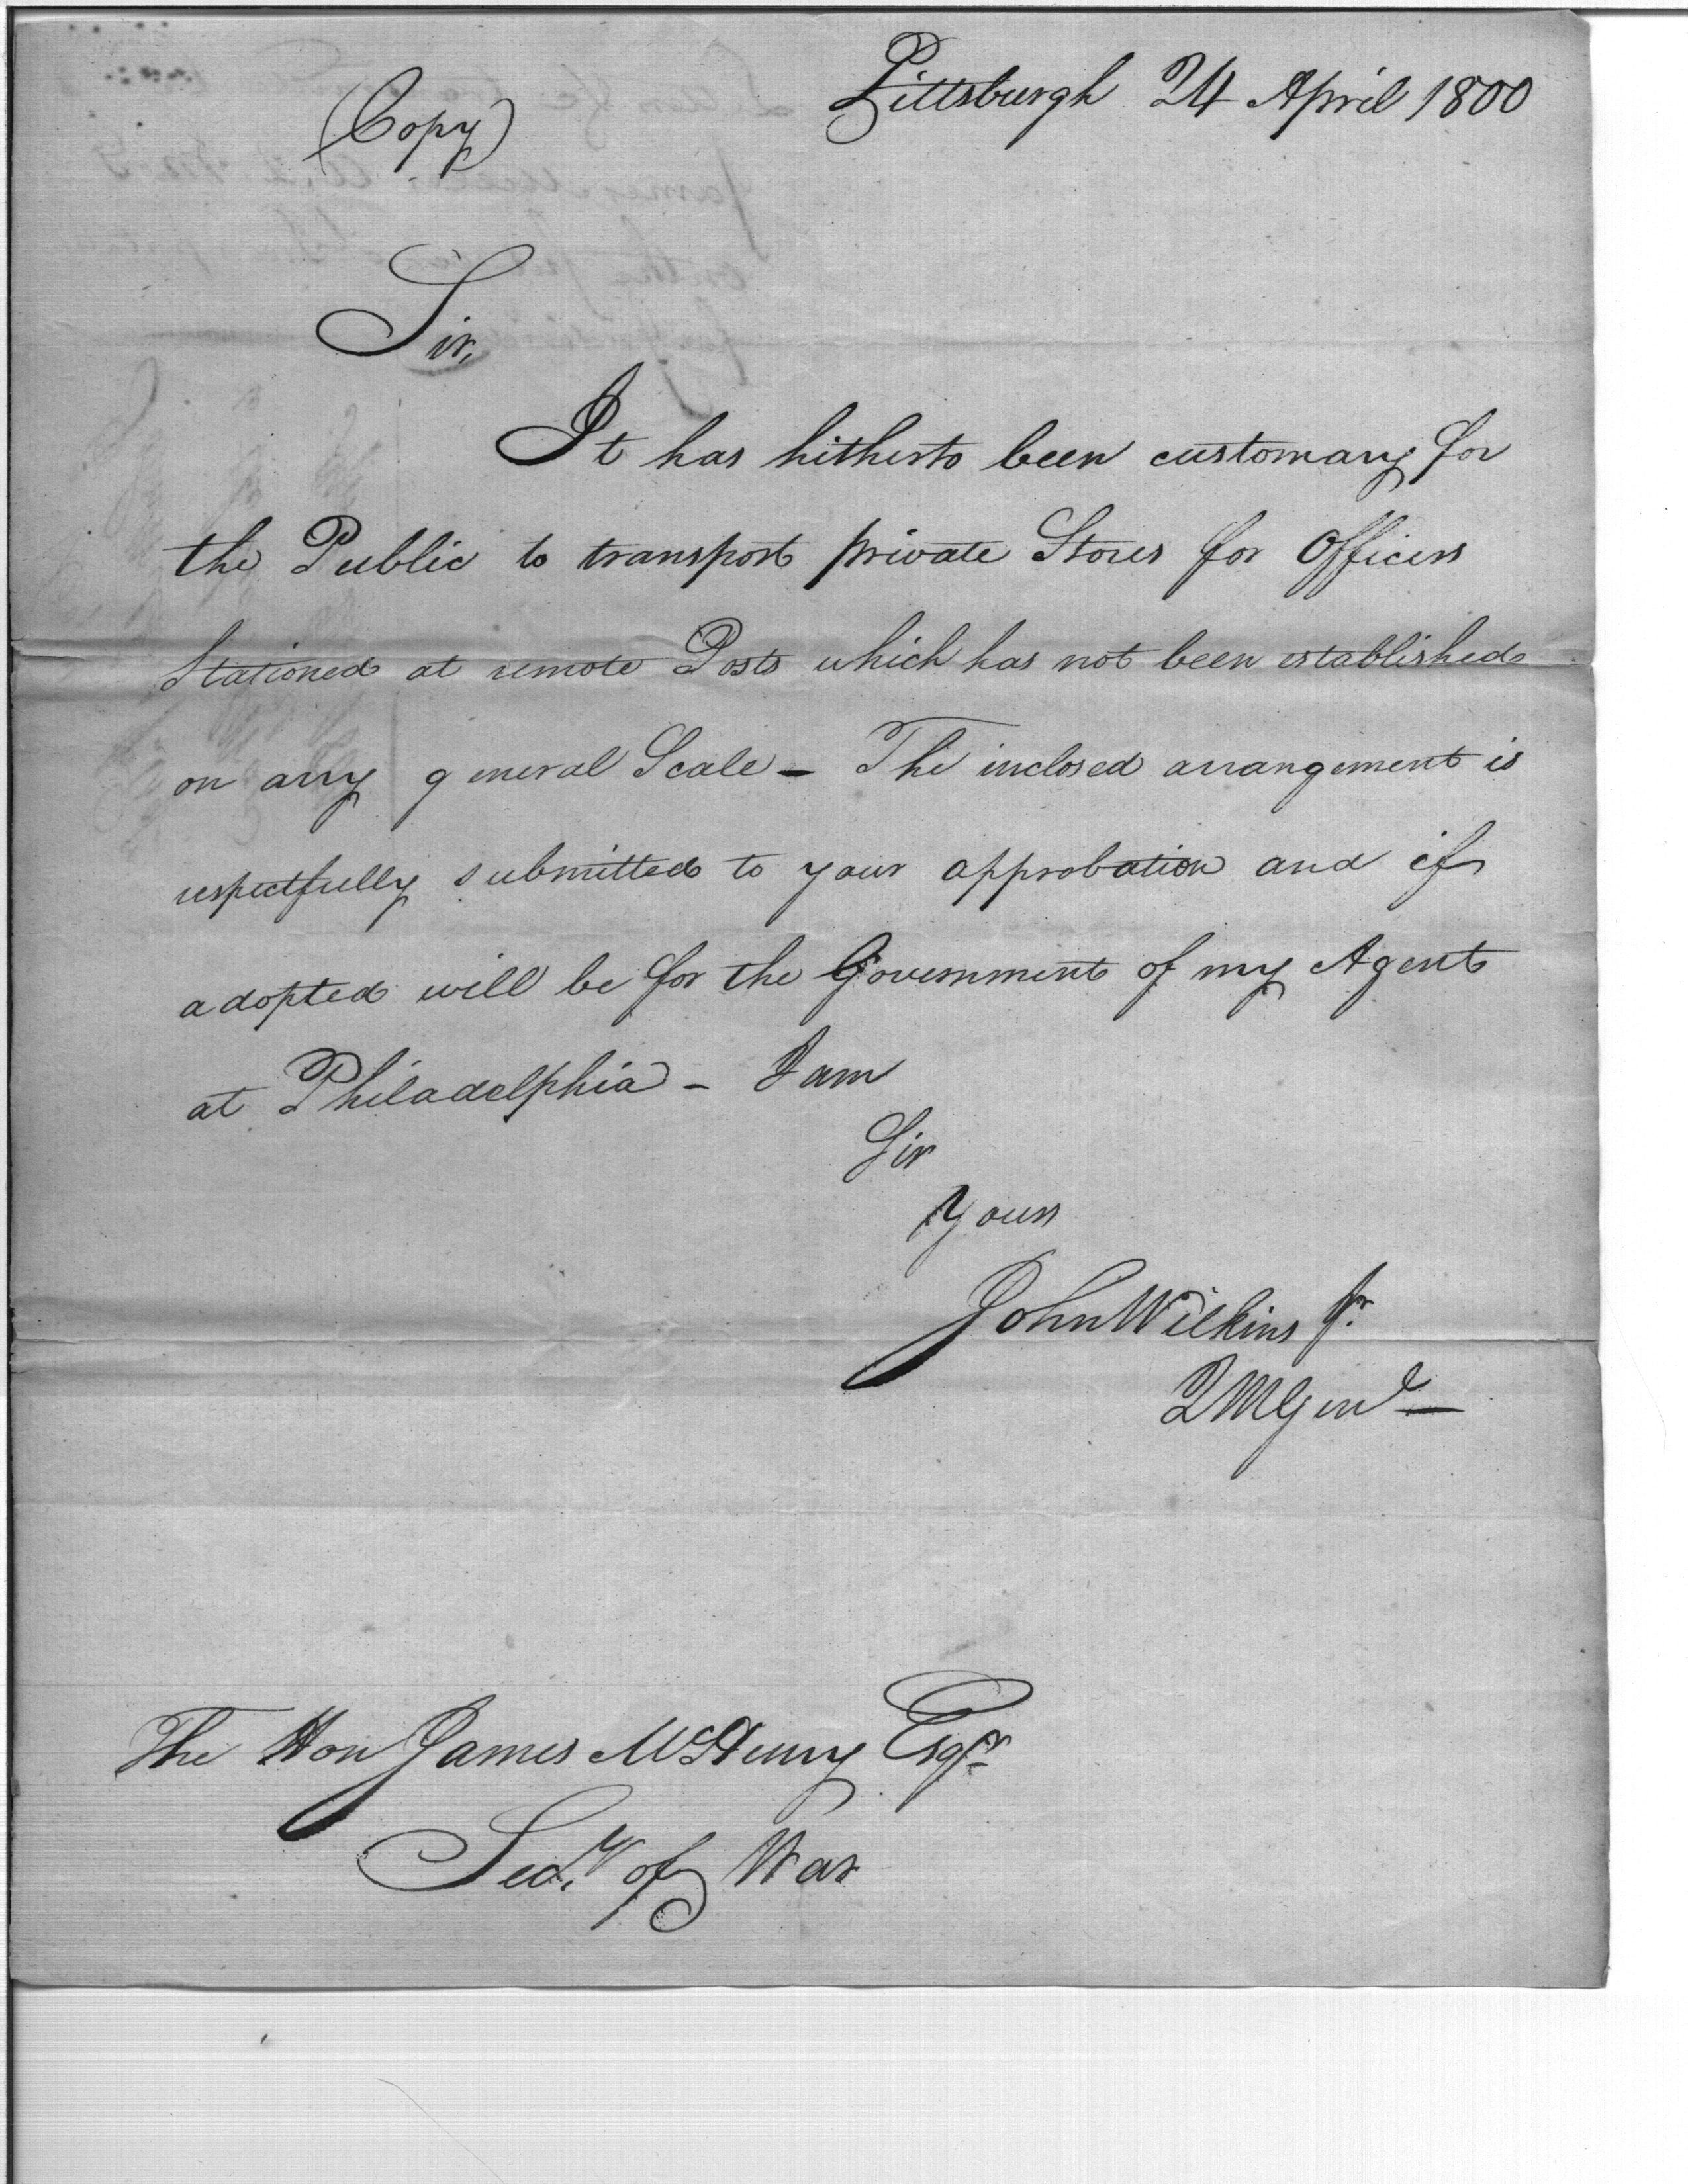 Pittsburgh 24 April 1800
(Copy)
Sir,
It has hitherto been customary for
the Public to transport private Stores for Officers
Stationed at remote Posts which has not been established
on any general Scale - The inclosed arrangement is
respectfully submitted to your approbation and if
adopted will be for the Government of my Agent
at Philadelphia - I am
Sir
Yours
John Wilkins Jr.
QMGenl -
The Hon James McHenry Esqr
Secy of War